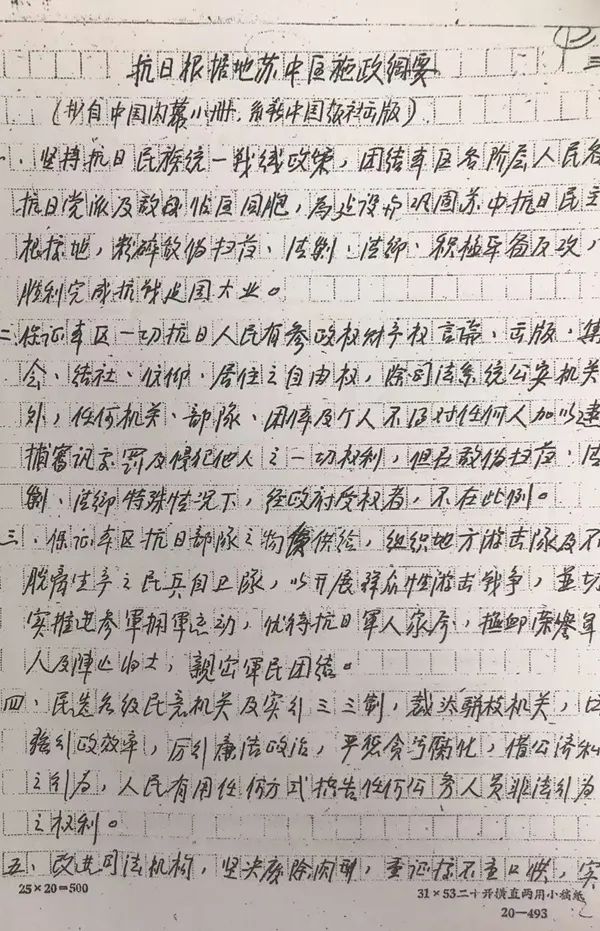 抗日根据地苏中区施政纲要
(抄自中国内幕小册,系新中国报社出版)
一、坚持抗日民族统一战线政策,团结本区各阶层人民各
抗日党派及敌伪占区同胞,为建设与巩固苏中抗日民主
根据地,粉碎敌伪扫荡、清剿、清乡、积极准备反攻,
胜利完成抗战建国大业。
二、保证本区一切抗日人民有参政权财产权言论、出版、集
会、结社、信仰、居住之自由权,除司法系统公安机关
外,任何机关、部队、团体及个人不得对任何人加以逮
捕审讯处罚及侵犯他人之一切权利,但在敌伪扫荡、清
剿、清乡特殊情况下,经政府受权者,不在此例。
三、保证本区抗日部队之物质供给,组织地方游击队及不
脱离生产之民兵自卫队,以开展群众性游击战争,並切
实推进参軍拥軍运动,优待抗日軍人家属,抚卹荣誉軍
人及陣亡将士,親密軍民团结。
四、民选各级民意机关及实行三三制,裁汰駢枝机关,以
强行政效率,厉行廉洁政治,严惩贪污腐化,借公济私
之行为,人民有用任何方式控告任何公务人员非法行为
之权利。
五、改进司法机构,坚决废除肉刑,重证据不重口供,实
25×20=500
31×53二十开横直两用小稿纸
20—493